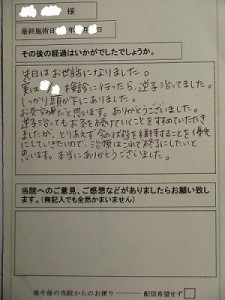 様
最終施術日 年 月 日
その後の経過はいかがでしたでしょうか。
先日はお世話になりました。
実は 検診に行ったら、逆子治ってました。
しっかり頭が下にありました。
お灸効果だと思います。ありがとうございました。
逆子治ってもお灸を続けていくことをすすめていただき
ましたが、とりあえず今の状態を維持することを優先
にしていきたいので、治療はこれで終了にしたいと
思います。本当にありがとうございました。
当院へのご意見、ご感想などがありましたらお願い致し
ます。（無記入でも全然かまいません）
※今後の当院からのお便り 配信希望せず □